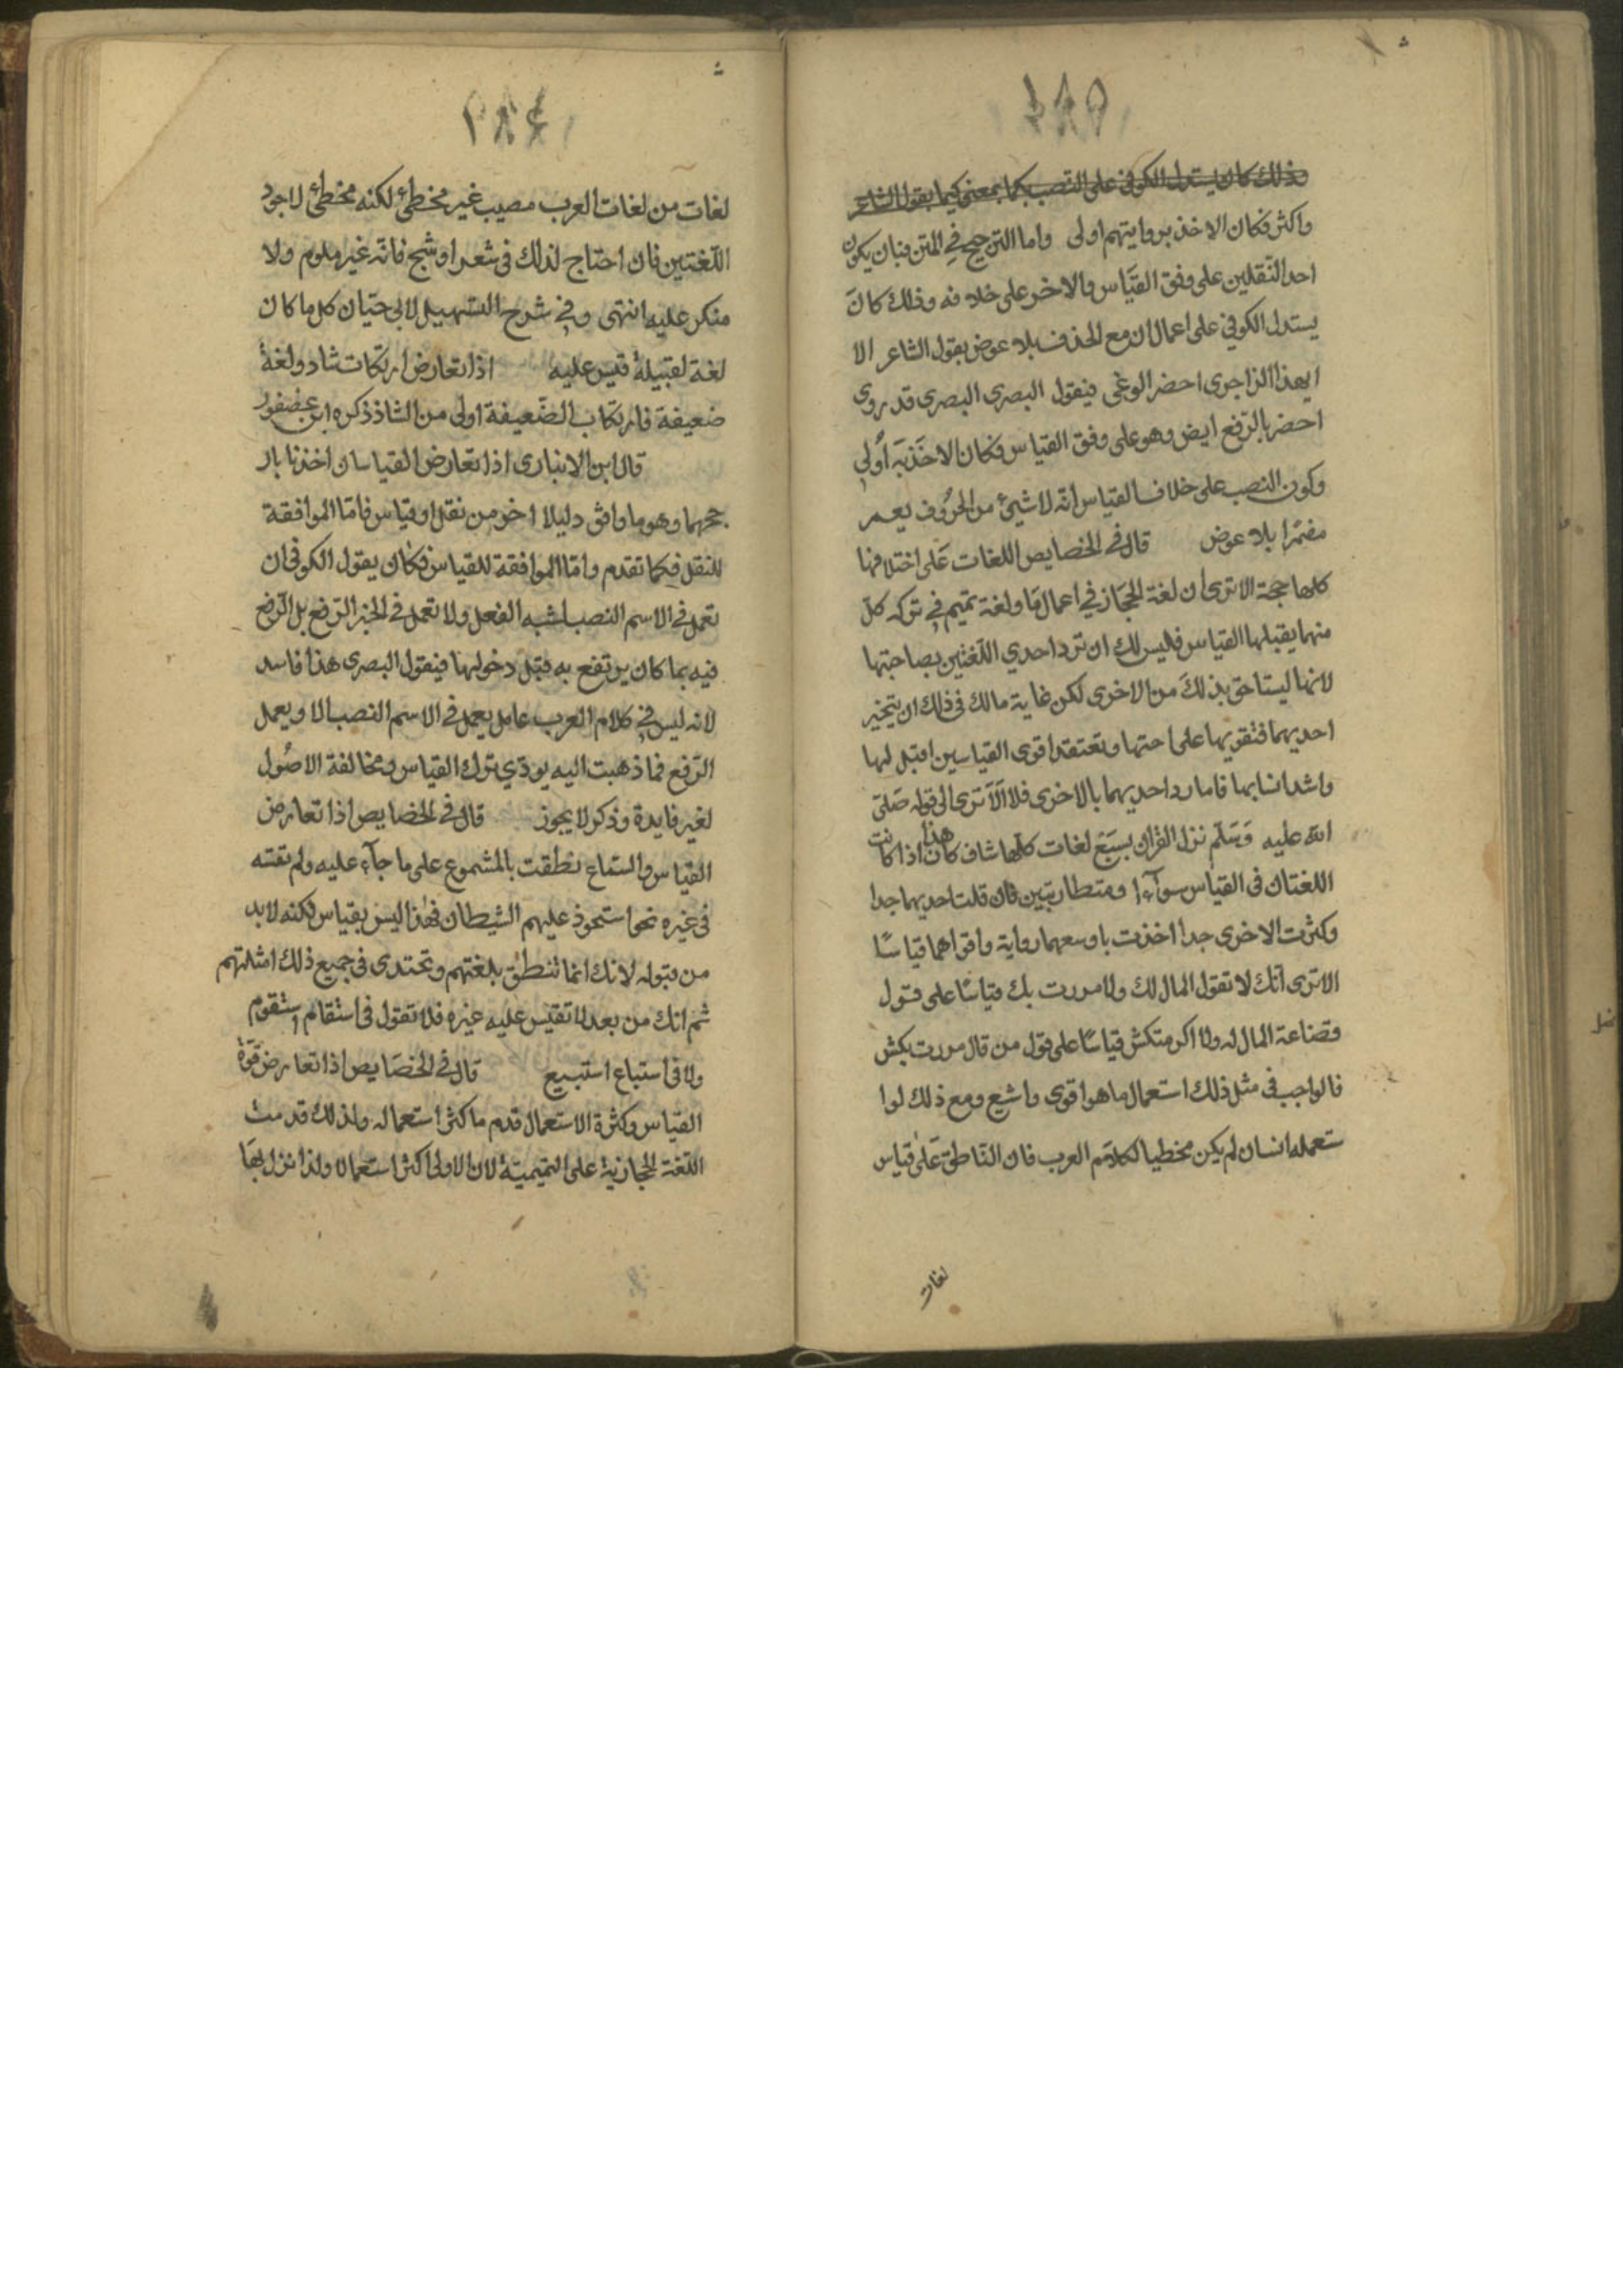 ١٨٥
وذلك كان يستدل الكوفي على النصب بكما بمعنى كيما بقول الشاعر
واكثر فكان الاخذ بروايتهم اولى واما الترجيح في المتن فبان يكون
احد النقلين على وفق القياس والاخر على خلافه وذلك كان
يستدل الكوفي على اعمال ان مع الحذف بلا عوض بقول الشاعر الا
ايهذا الزاجرى احضر الوغى فيقول البصرى البصرى قد روى
احضر بالرفع ايض وهو على وفق القياس فكان الاخذ به اولى
وكون النصب على خلاف القياس انه لا شيئ من الحروف يعمر
مضمرا بلا عوض قال في الخصايص اللغات على اختلافها
كلها حجة الا ترى ان لغة الحجاز في اعمال ما ولغة تميم في تركه كل
منهما يقبلها القياس فليس لك ان ترد احدي اللغتين بصاحبتها
لانها ليست احق بذلك من الاخرى لكن غاية مالك في ذلك ان تتخير
احديهما فتقويها على اختها وتعتقد اقوى القياسين اقبل لها
واشد انسابها فاما رد احديهما بالاخرى فلا الا ترى الى قوله صلى
الله عليه وسلم نزل القران بسبع لغات كلها شاف كاف هذا اذا كانت
اللغتان في القياس سوآءا ومتطاربتين فان قلت احديهما جدا
وكثرت الاخرى جدا اخذت باوسعهما رواية واقواهما قياسا
الا ترى انك لا تقول المال لك ولا مررت بك قياسا على قول
قضاعة المال له ولا اكرمتكش قياسا على قول من قال مررت بكش
فالواجب في مثل ذلك استعمال ما هو اقوى واشيع ومع ذلك لوا
ستعمله انسان لم يكن مخطيا لكلام العرب فان الناطق على قياس
لغات
١٨٤
لغات من لغات العرب مصيب غير مخطئ لكنه مخطئ لاجود
اللغتين فان احتاج لذلك في شعر او سجع فانه غير ملوم ولا
منكر عليه انتهى وفي شرح التسهيل لابي حيان كل ما كان
لغة لقبيلة قيس عليه اذا تعارض ارتكاب شاد ولغة
ضعيفة فارتكاب الضعيفة اولى من الشاذ ذكره ابن عصفور
قال ابن الانبارى اذا تعارض القياسان اخذنا بار
جحهما وهو ما وافق دليلا اخر من نقل او قياس فاما الموافقة
للنقل فكما تقدم واما الموافقة للقياس فكان يقول الكوفي ان
تعمل في الاسم النصب لشبه الفعل ولا تعمل في الخبر الرفع بل الرفع
فيه بما كان يرتفع به قبل دخولها فيقول البصرى هذا فاسد
لانه ليس في كلام العرب عامل يعمل في الاسم النصب الا ويعمل
الرفع فما ذهبت اليه يودي ترك القياس ومخالفة الاصول
لغير فايدة وذكر لا يجوز قال في الخصايص اذا تعارض
القياس والسماع نطقت بالمسموع على ما جآء عليه ولم تقسه
في غيره نحو استحوذ عليهم الشيطان فهذا ليس بقياس لكنه لا بد
من قبوله لانك انما تنطق بلغتهم وتحتدى في جميع ذلك امثلتهم
ثم انك من بعد لا تقيس عليه غيره فلا تقول في استقام استقوم
ولا في استباع استبيع قال في الخصايص اذا تعارض قوة
القياس وكثرة الاستعمال قدم ما كثر استعماله ولذلك قدمت
اللغة الحجازية على التميمية لان الاولى اكثر استعمالا ولذا نزل بها